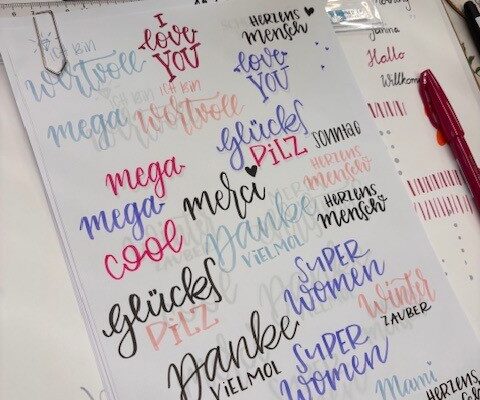 I
love
YOU
HERZENS
mensch
ICH BIN
wertvoll
love
YOU
mega
ICH BIN
wertvoll
glücks
PiLZ
SONNTAG
mega
mega
cool
merci
HERZENS
mensch
HERZENS
mensch
Danke
VIELMOL
SUPER
women
glücks
PiLZ
Winter
ZAUBER
Danke
VIELMOL
SUPER
women
Mami
HERZENS
Hallo